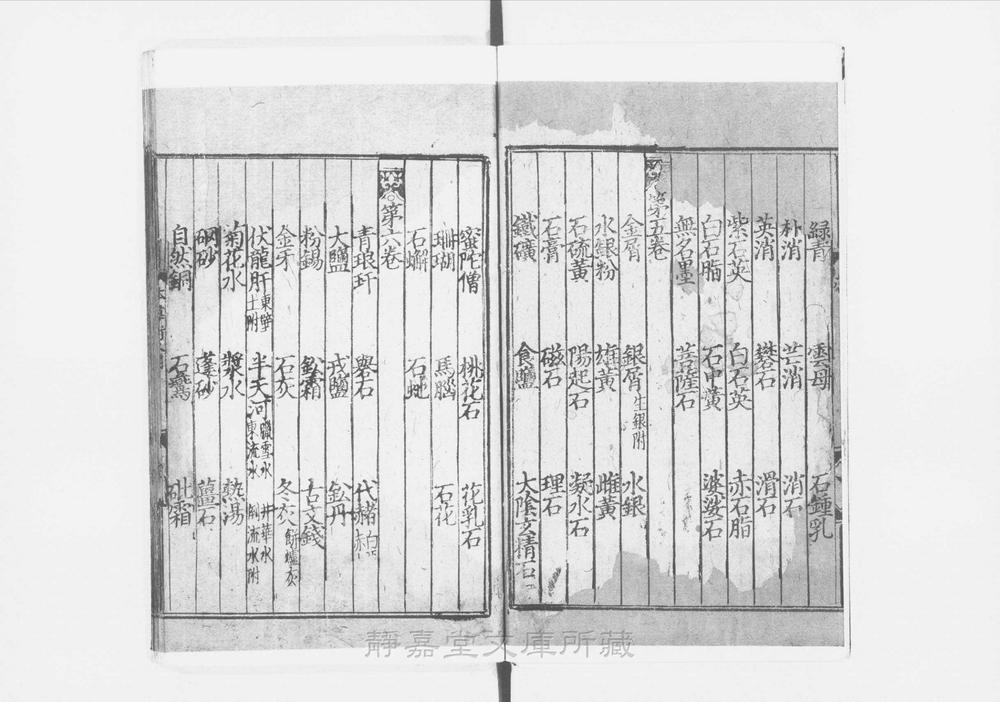 緑青 雲母 石鍾乳
朴消 芒消 消石
英消 礬石 滑石
紫石英 白石英 赤石脂
白石脂 石中黃 婆娑石
無名墨 菩薩石
第五卷
金屑 銀屑生銀附 水銀
水銀粉 雄黃 雌黃
石硫黃 陽起石 凝水石
石膏 磁石 理石
鐵礦 食鹽 大陰玄精石
蜜陀僧 桃花石 花乳石
珊瑚 馬腦 石花
石蠏 石虵
第六卷
青琅玕 礜石 代赭
大鹽 戎鹽 鈆丹
粉錫 鈆霜 古文錢
金牙 石灰 冬灰餅爐灰
伏龍肝東壁土附 半天河臘雪水東流水 井華水 流水附
菊花水 漿水 熱湯
硇砂 蓬砂 薑石
自然銅 石鷰 砒霜
靜嘉堂文庫所藏